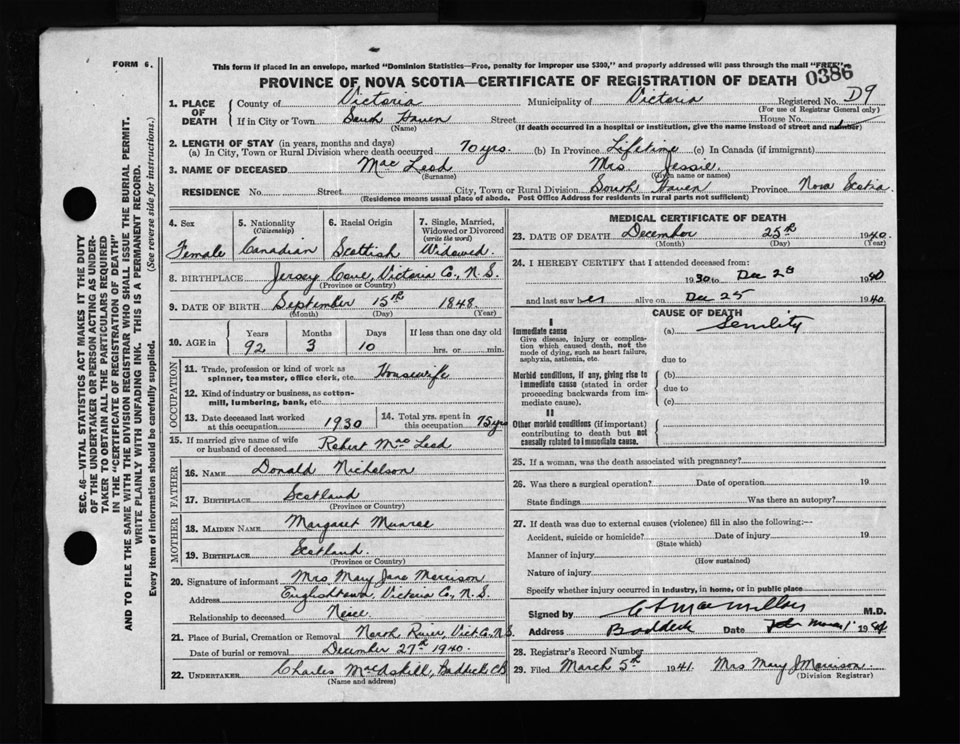 FORM 6.
This form if placed in an envelope, marked "Dominion Statistics—Free, penalty for improper use $300," and properly addressed will pass through the mail "FREE"
PROVINCE OF NOVA SCOTIA—CERTIFICATE OF REGISTRATION OF DEATH 0386
1. PLACE OF DEATH
County of Victoria Municipality of Victoria Registered No. D9
(For use of Registrar General only)
If in City or Town South Haven Street House No.
(Name) (If death occurred in a hospital or institution, give the name instead of street and number)
2. LENGTH OF STAY (in years, months and days)
(a) In City, Town or Rural Division where death occurred 70 yrs. (b) In Province Lifetime (c) In Canada (if immigrant)
3. NAME OF DECEASED Mac Leod Mrs Jessie.
(Surname) (Given name or names)
RESIDENCE No. Street City, Town or Rural Division South Haven Province Nova Scotia.
(Residence means usual place of abode. Post Office Address for residents in rural parts not sufficient)
SEC. 46—VITAL STATISTICS ACT MAKES IT THE DUTY
OF THE UNDERTAKER OR PERSON ACTING AS UNDER-
TAKER TO OBTAIN ALL THE PARTICULARS REQUIRED
IN THE "CERTIFICATE OF REGISTRATION OF DEATH"
AND TO FILE THE SAME WITH THE DIVISION REGISTRAR WHO SHALL ISSUE THE BURIAL PERMIT.
WRITE PLAINLY WITH UNFADING INK. THIS IS A PERMANENT RECORD.
Every item of information should be carefully supplied. (See reverse side for instructions.)
4. Sex
Female
5. Nationality
(Citizenship)
Canadian
6. Racial Origin
Scottish
7. Single, Married,
Widowed or Divorced
(write the word)
Widowed
8. BIRTHPLACE Jersey Cove, Victoria Co, N.S.
(Province or Country)
9. DATE OF BIRTH September 15th 1848.
(Month) (Day) (Year)
10. AGE in
Years Months Days If less than one day old
92 3 10 hrs. or min.
OCCUPATION
11. Trade, profession or kind of work as
spinner, teamster, office clerk, etc. Housewife
12. Kind of industry or business, as cotton-
mill, lumbering, bank, etc.
13. Date deceased last worked
at this occupation 1930
14. Total yrs. spent in
this occupation 75 yrs
15. If married give name of wife
or husband of deceased Robert Mac Leod
FATHER
16. NAME Donald Nicholson
17. BIRTHPLACE Scotland
(Province or Country)
MOTHER
18. MAIDEN NAME Margaret Munroe
19. BIRTHPLACE Scotland.
(Province or Country)
20. Signature of informant Mrs. Mary Jane Morrison
Address Englishtown, Victoria Co, N.S.
Relationship to deceased Neice.
21. Place of Burial, Cremation or Removal North River, Vict Co, N.S.
Date of burial or removal December 27th 1940.
22. UNDERTAKER Charles MacAskill, Baddeck CB
(Name and address)
MEDICAL CERTIFICATE OF DEATH
23. DATE OF DEATH December 25th 1940
(Month) (Day) (Year)
24. I HEREBY CERTIFY that I attended deceased from:
1930 to Dec 25 1940
and last saw her alive on Dec 25 1940
CAUSE OF DEATH
I
Immediate cause
Give disease, injury or complica-
tion which caused death, not the
mode of dying, such as heart failure,
asphyxia, asthenia, etc.
(a) Senility
due to
Morbid conditions, if any, giving rise to
immediate cause (stated in order
proceeding backwards from im-
mediate cause).
(b)
due to
(c)
II
Other morbid conditions (if important)
contributing to death but not
causally related to immediate cause.
25. If a woman, was the death associated with pregnancy?
26. Was there a surgical operation? Date of operation 19
State findings Was there an autopsy?
27. If death was due to external causes (violence) fill in also the following:—
Accident, suicide or homicide? Date of injury 19
(State which)
Manner of injury
(How sustained)
Nature of injury
Specify whether injury occurred in industry, in home, or in public place
Signed by C L MacMillan M.D.
Address Baddeck Date 19
28. Registrar's Record Number
29. Filed March 5th 1941. Mrs Mary J Morrison.
(Division Registrar)